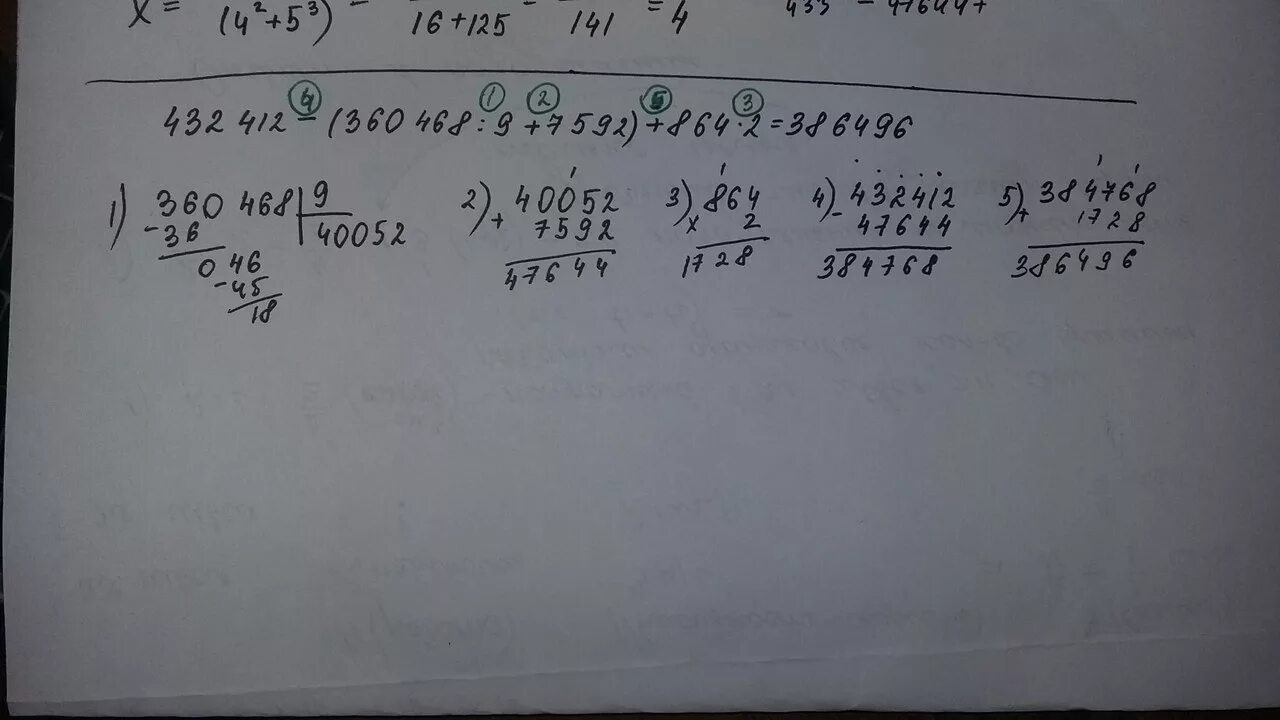 X = (4²+5³) = 16+125 = 141 = 4
433 - 47644+
4 1 2 5 3
432 412 - (360 468 : 9 + 7 592) + 864 · 2 = 386496
1) 360 468 | 9
-36 40052
0 46
-45
18
2) 40052
+ 7592
47644
3) 864
x 2
1728
4) - 432412
47644
384768
5) 384768
+ 1728
386496